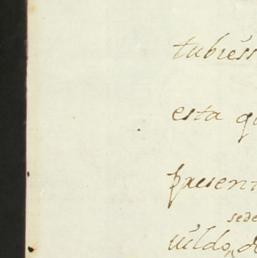 tubiess
esta q
presen
sede
uildo, d